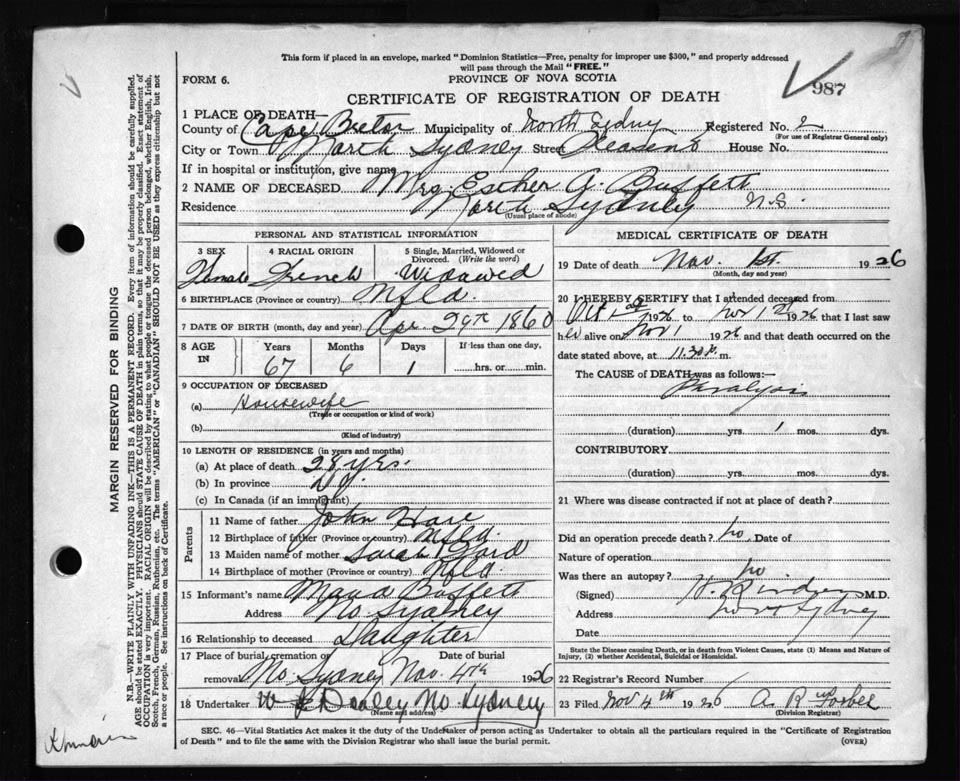 This form if placed in an envelope, marked "Dominion Statistics—Free, penalty for improper use $300," and properly addressed
will pass through the Mail "FREE."
FORM 6.
PROVINCE OF NOVA SCOTIA
987
CERTIFICATE OF REGISTRATION OF DEATH
1 PLACE OF DEATH—
County of Cape Breton Municipality of North Sydney Registered No. 2
(For use of Registrar General only)
City or Town North Sydney Street Pleasent House No.
If in hospital or institution, give name
2 NAME OF DECEASED Mrs. Esther J. Buffett
Residence North Sydney N.S.
(Usual place of abode)
PERSONAL AND STATISTICAL INFORMATION
3 SEX 4 RACIAL ORIGIN 5 Single, Married, Widowed or Divorced. (Write the word)
Female French Widowed
6 BIRTHPLACE (Province or country) Nfld.
7 DATE OF BIRTH (month, day and year) Apr. 29th 1860
8 AGE IN Years Months Days If less than one day,
67 6 1 hrs. or min.
9 OCCUPATION OF DECEASED
(a) Housewife
(Trade or occupation or kind of work)
(b)
(Kind of industry)
10 LENGTH OF RESIDENCE (in years and months)
(a) At place of death 28 yrs.
(b) In province
(c) In Canada (if an immigrant)
Parents
11 Name of father John Hare
12 Birthplace of father (Province or country) Nfld.
13 Maiden name of mother Sarah
14 Birthplace of mother (Province or country) Nfld.
15 Informant's name Maud Buffett
Address No Sydney
16 Relationship to deceased Daughter
17 Place of burial, cremation or removal Date of burial
No Sydney Nov. 4th 1926
18 Undertaker No. Sydney
(Name and address)
MEDICAL CERTIFICATE OF DEATH
19 Date of death Nov. 1st. 1926
(Month, day and year)
20 I HEREBY CERTIFY that I attended deceased from
Oct 1st 1926 to Nov 1st 1926 that I last saw
her alive on Nov 1 1926 and that death occurred on the
date stated above, at 11.30 m.
The CAUSE of DEATH was as follows:—
Paralysis
(duration) yrs. 1 mos. dys.
CONTRIBUTORY
(duration) yrs. mos. dys.
21 Where was disease contracted if not at place of death?
Did an operation precede death? no. Date of
Nature of operation
Was there an autopsy? no
(Signed) M.D.
Address North Sydney
Date
State the Disease causing Death, or in death from Violent Causes, state (1) Means and Nature of
Injury, (2) whether Accidental, Suicidal or Homicidal.
22 Registrar's Record Number
23 Filed Nov 4th 1926 A. R. Forbes
(Division Registrar)
SEC. 46—Vital Statistics Act makes it the duty of the Undertaker or person acting as Undertaker to obtain all the particulars required in the "Certificate of Registration
of Death" and to file the same with the Division Registrar who shall issue the burial permit.
(OVER)
MARGIN RESERVED FOR BINDING
N.B.—WRITE PLAINLY WITH UNFADING INK—THIS IS A PERMANENT RECORD. Every item of information should be carefully supplied.
AGE should be stated EXACTLY. PHYSICIANS should STATE CAUSE OF DEATH in plain terms, so that it may be properly classified. Exact statement of
OCCUPATION is very important. RACIAL ORIGIN will be described by stating to what people or tongue the deceased person belonged, whether English, Irish,
Scotch, French, German, Russian, Ruthenian, etc. The terms "AMERICAN" or "CANADIAN" SHOULD NOT BE USED as they express citizenship but not
a race or people. See instructions on back of Certificate.